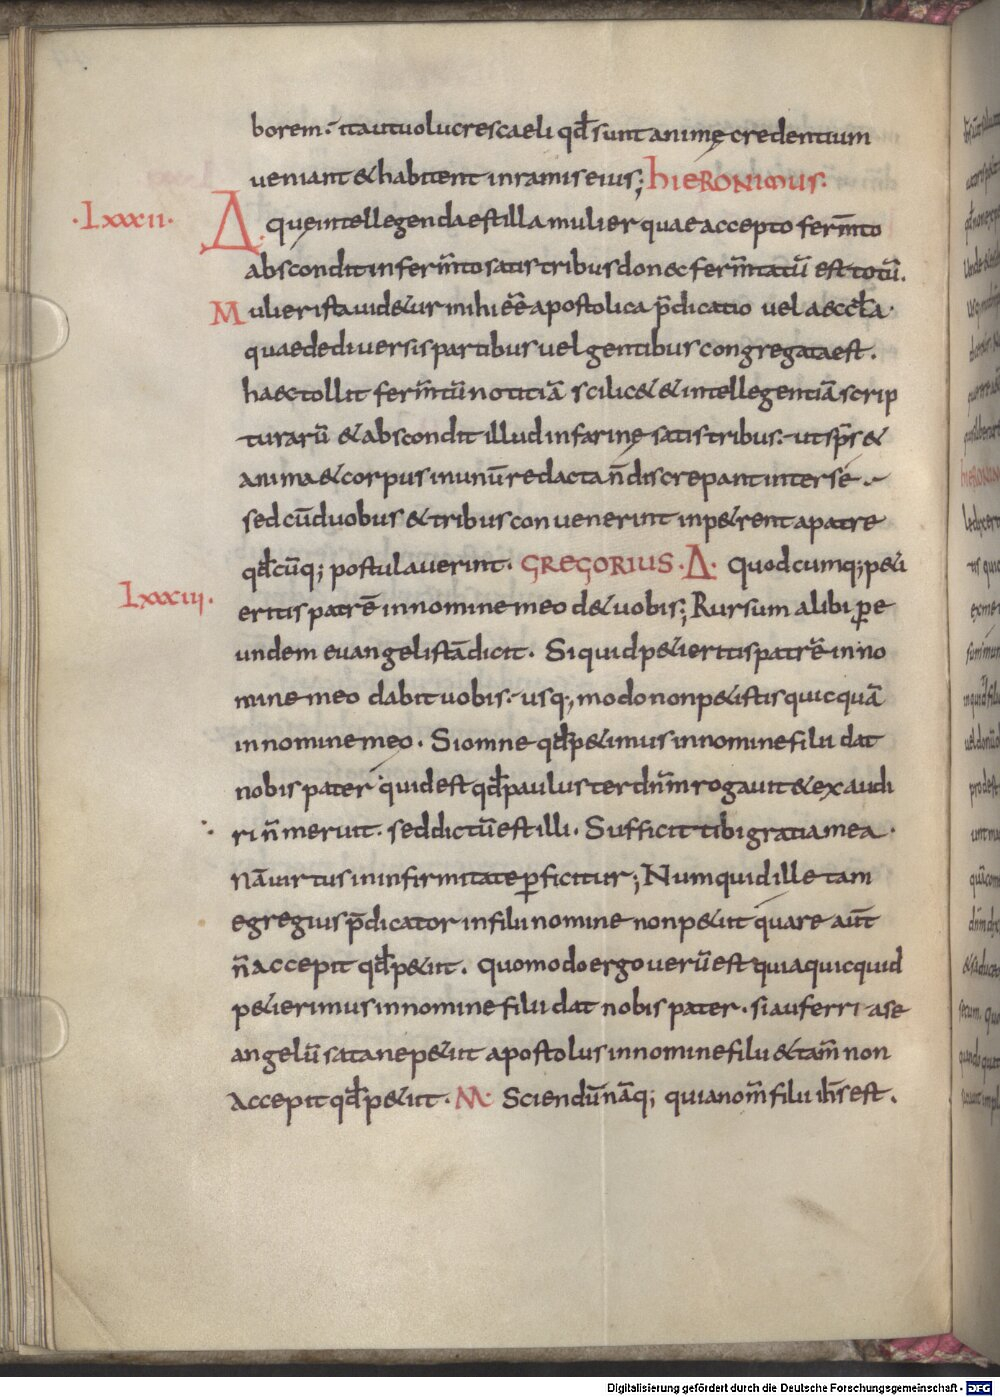 borem. ita ut uolucres caeli qđ sunt animę credentium
ueniant & habitent in ramis eius; hIERONIMUS.
·Lxxxii· Δ. que intellegenda est illa mulier quae accepto ferm̄to
abscondit in ferm̄to satis tribus donec ferm̄tatū est totū.
Mulier ista uid&ur mihi eē apostolica p̄dicatio uel aeccła·
quae de diuersis partibus uel gentibus congregata est.
haec tollit ferm̄tū notitiā scilic& & intellegentiā scrip
turarū & abscondit illud in farinę satis tribus. ut sps̄ &
anima & corpus in unū redacta n̄ discrepant inter se.
sed cū duobus & tribus conuenerint inp&rent a patre
qđcūq; postulauerint. GREGORIUS. Δ. Quodcumq; p&i
Lxxxiii. eritis patrē in nomine meo d& uobis; Rursum alibi per
undem euangelistā dicit. Si quid p&ieritis patrē in no
mine meo dabit uobis. usq; modo non p&istis quicquā
in nomine meo. Si omne qđ p&imus in nomine filii dat
nobis pater quid est qđ paulus ter dn̄m rogauit & exaudi
ri n̄ meruit. sed dictū est illi. Sufficit tibi gratia mea.
Nā uirtus in infirmitate perficitur; Numquid ille tam
egregius p̄dicator in filii nomine non p&iit quare aūt
n̄ accepit qđ p&iit. quomodo ergo uerū est quia quicquid
p&ierimus in nomine filii dat nobis pater. si auferri a se
angelū satane p&iit apostolus in nomine filii & tam̄ non
accepit qđ p&iit. M. Sciendū nāq; quia nom̄ filii ihs̄ est.
Digitalisierung gefördert durch die Deutsche Forschungsgemeinschaft - DFG